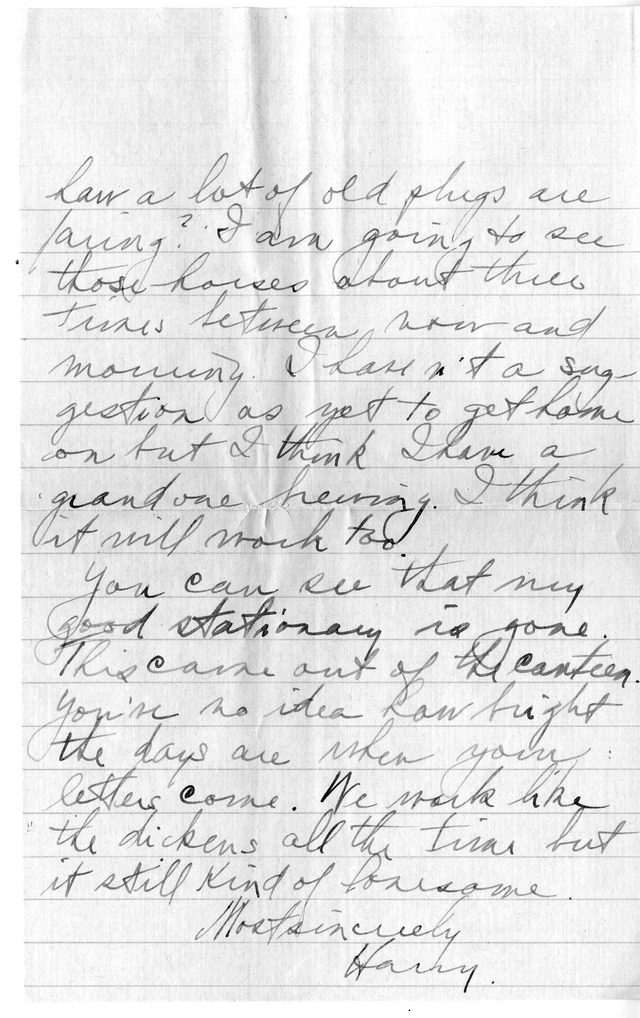 how a lot of old plugs are
faring? I am going to see
those horses about three
times between now and
morning. I haven't a sug-
gestion as yet to get home
on but I think I have a
grand one brewing. I think
it will work too.
You can see that my
good stationary is gone.
This came out of the canteen.
You've no idea how bright
the days are when your
letters come. We work like
the dickens all the time but
it still kind of lonesome.
Most sincerely
Harry.